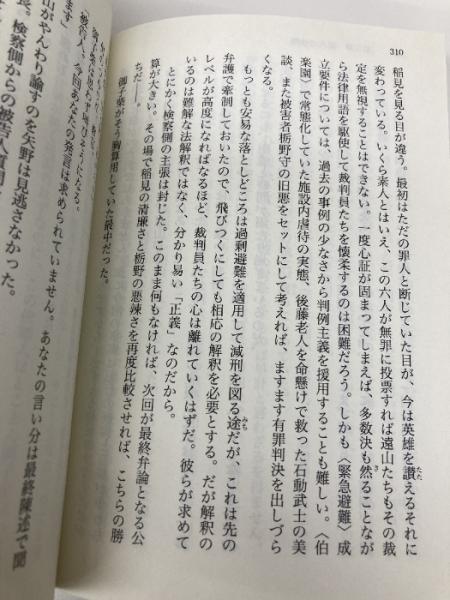 310
稲見を見る目が違う。最初はただの罪人と断じていた目が、今は英雄を讃えるそれに
変わっている。いくら素人とはいえ、この六人が無罪に投票すれば遠山たちもその裁
定を無視することはできない。一度心証が固まってしまえば、多数決も然ることなが
ら法律用語を駆使して裁判員たちを懐柔するのは困難だろう。しかも〈緊急避難〉成
立要件については、過去の事例の少なさから判例主義を援用することも難しい。〈伯
楽園〉で常態化していた施設内虐待の実態、後藤老人を命懸けで救った石動武士の美
談、また被害者栃野守の旧悪をセットにして考えれば、ますます有罪判決を出しづら
くなる。
もっとも安易な落としどころは過剰避難を適用して減刑を図る途だが、これは先の
弁護で牽制しておいたので、飛びつくにしても相応の解釈を必要とする。だが解釈の
レベルが高度になればなるほど、裁判員たちの心は離れていくはずだ。彼らが求めて
いるのは難解な法解釈ではなく、分かり易い「正義」なのだから。
とにかく検察側の主張は封じた。このまま何もなければ、次回が最終弁論となる公
算が大きい。その場で稲見の清廉さと栃野の悪辣さを再度比較させれば、こちらの勝
ちだ――。
御子柴がそう胸算用していた最中だった。
叫びそうになる。
「被告人、今回あなたの発言は求められていません。あなたの言い分は最終陳述で聞
ます」
山がやんわり諭すのを矢野は見逃さなかった。
検察側からの被告人質問